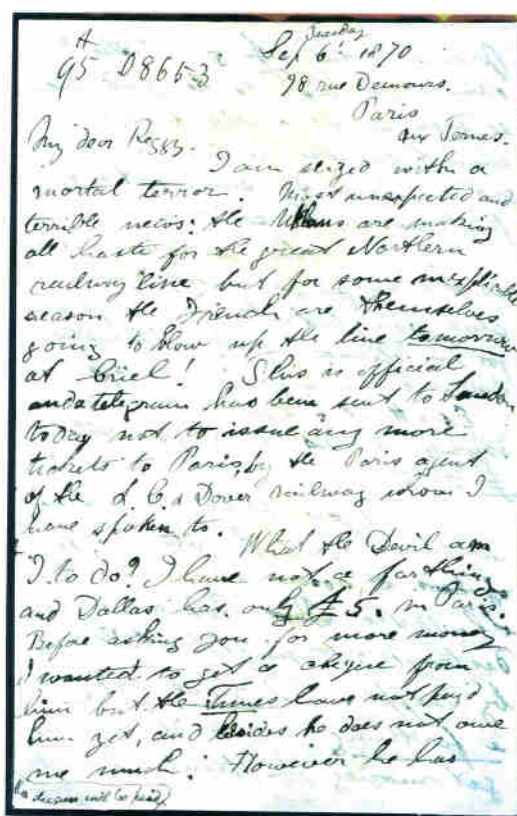 A
95 08653
Tuesday
Sep 6' 1870
98 rue Demours.
Paris
aux Ternes.
My dear Reggy.
I am seized with a
mortal terror. Most unexpected and
terrible news: the Uhlans are making
all haste for the great Northern
railway line but for some inexplicable
reason the French are themselves
going to blow up the line tomorrow
at Creil! This is official
and a telegram has been sent to London
today not to issue any more
tickets to Paris, by the Paris agent
of the L C & Dover railway whom I
have spoken to. What the Devil am
I to do? I have not a farthing
and Dallas has only £5. in Paris.
Before asking you for more money
I wanted to get a cheque from
him but the Times have not paid
him yet, and besides he does not owe
me much. However he has